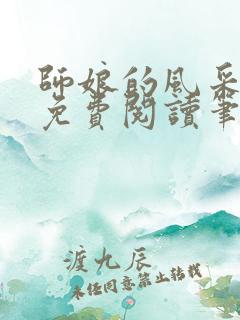 師娘的風采
免費閱讀筆
渡九辰
未经同意禁止转载